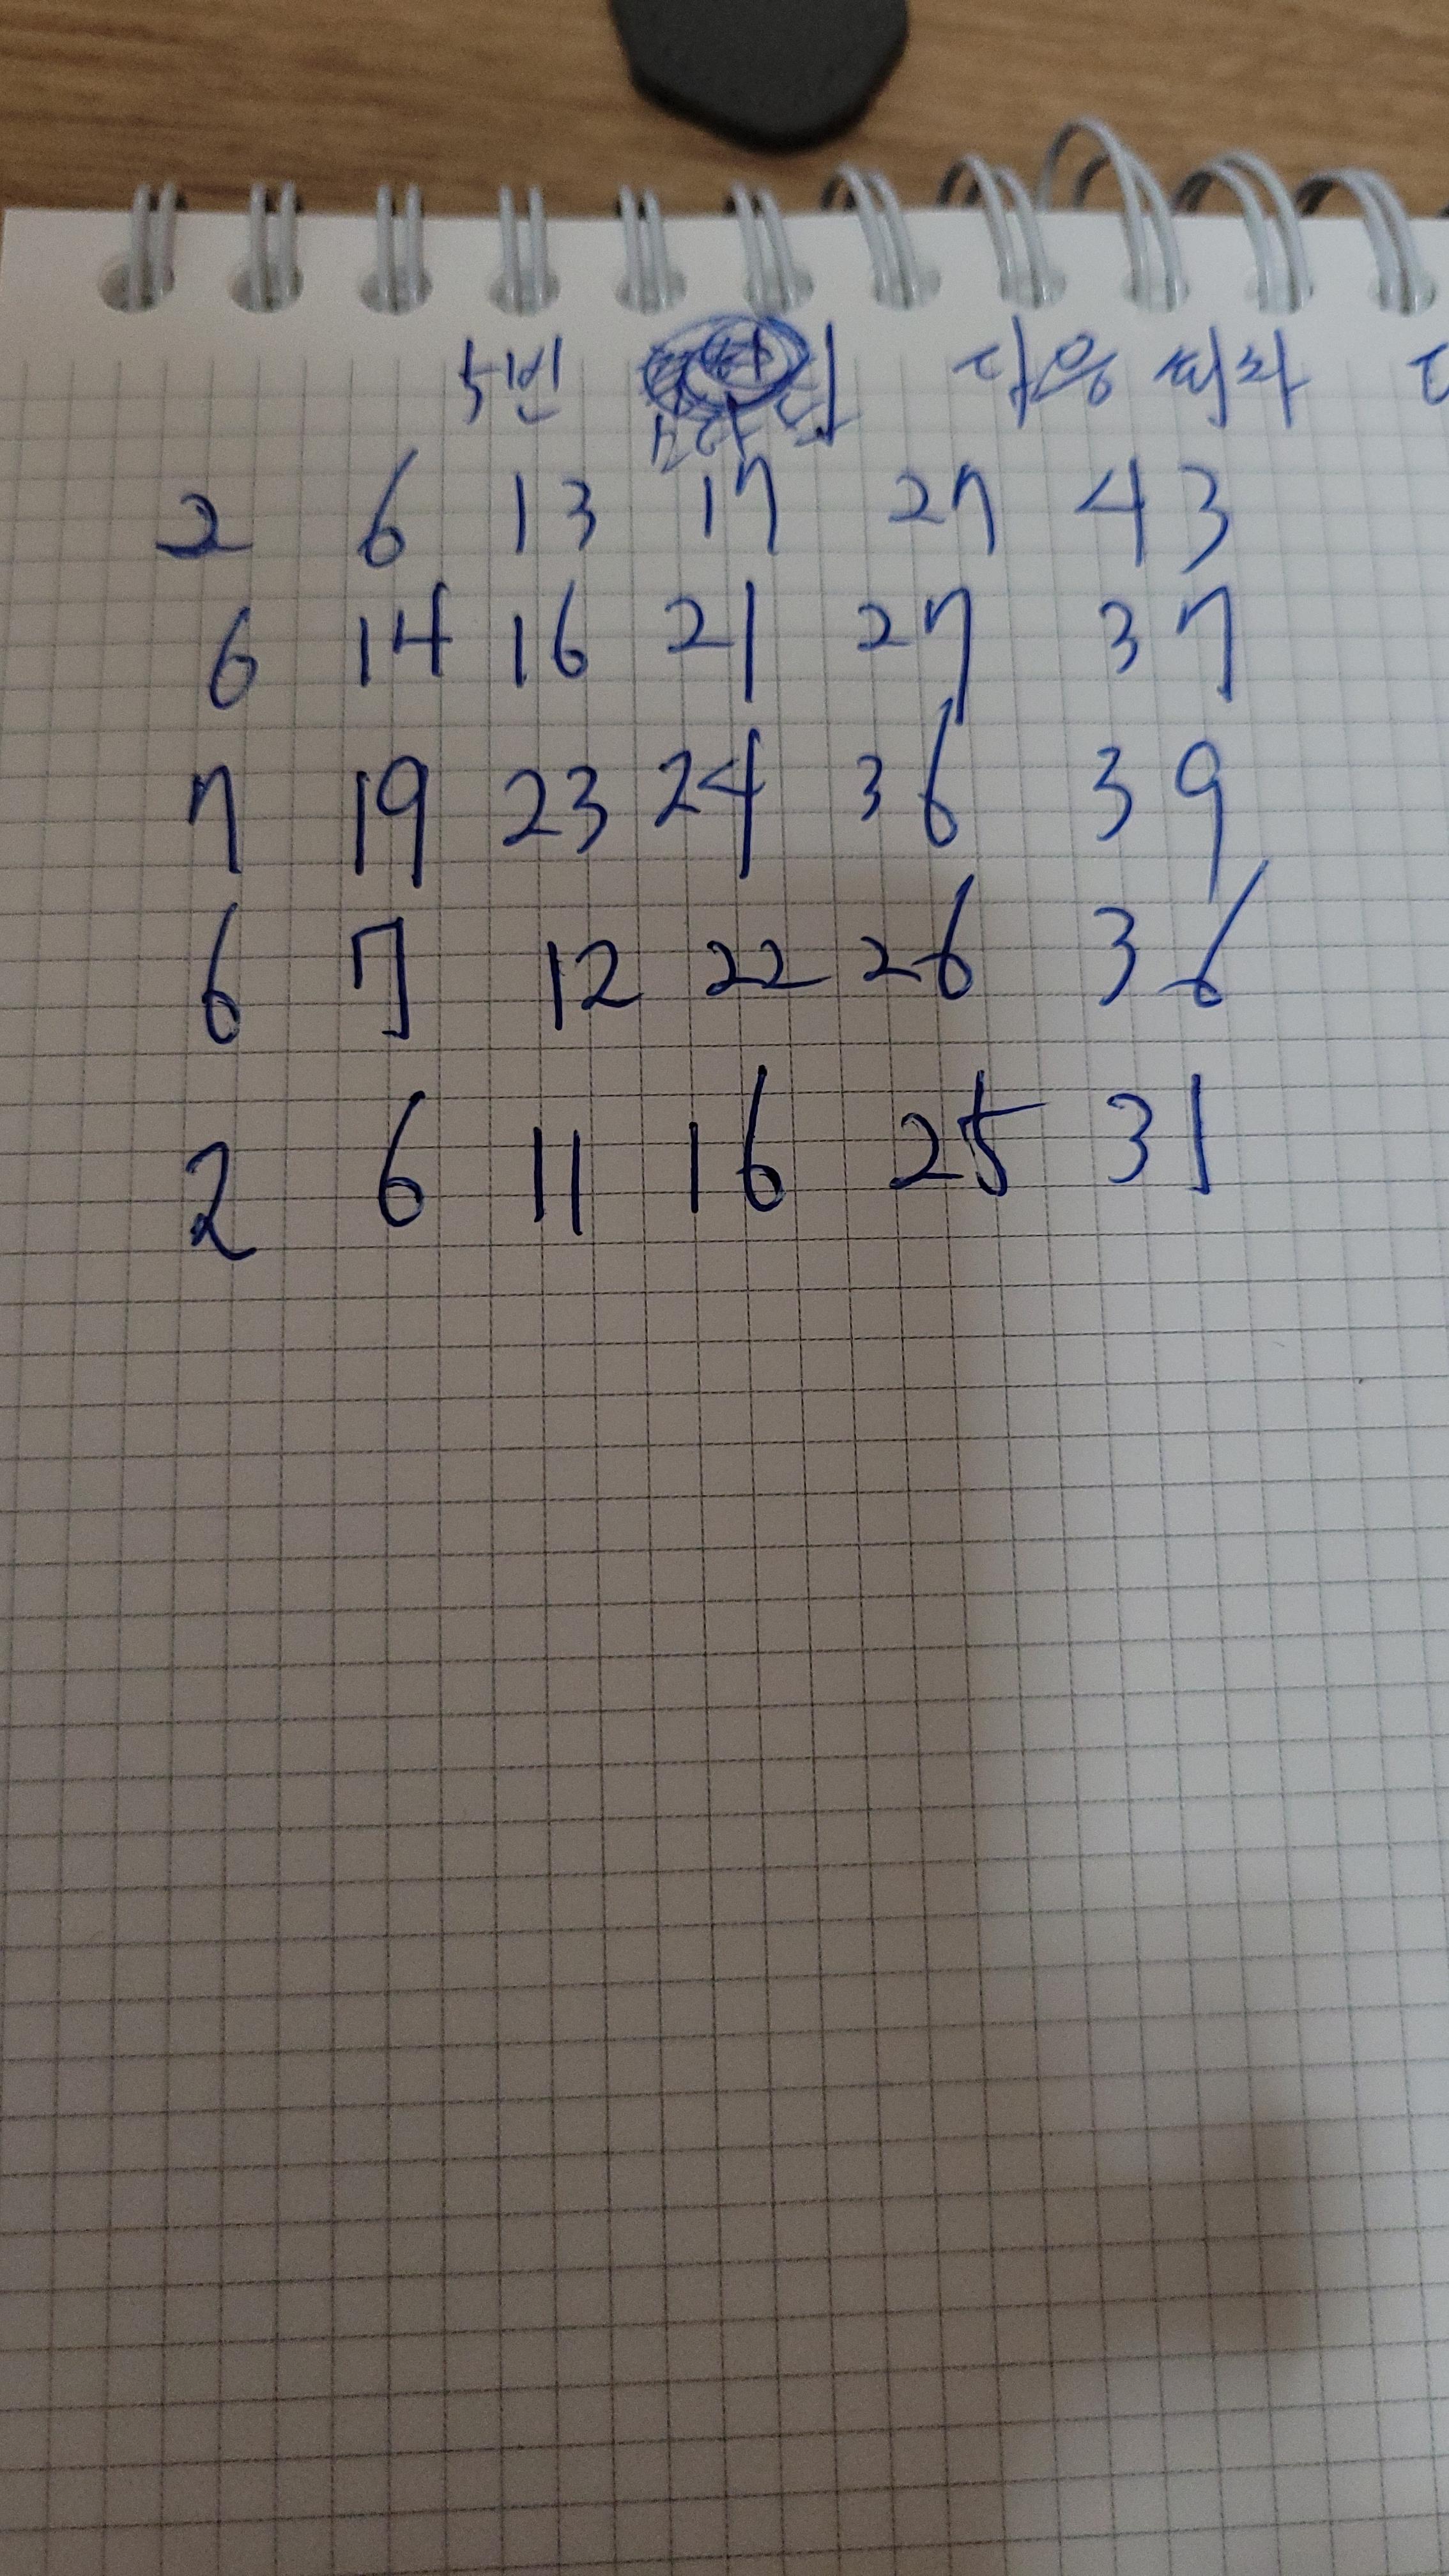 5번 다음 회차
2 6 13 17 27 43
6 14 16 21 27 37
7 19 23 24 36 39
6 7 12 22 26 36
2 6 11 16 25 31